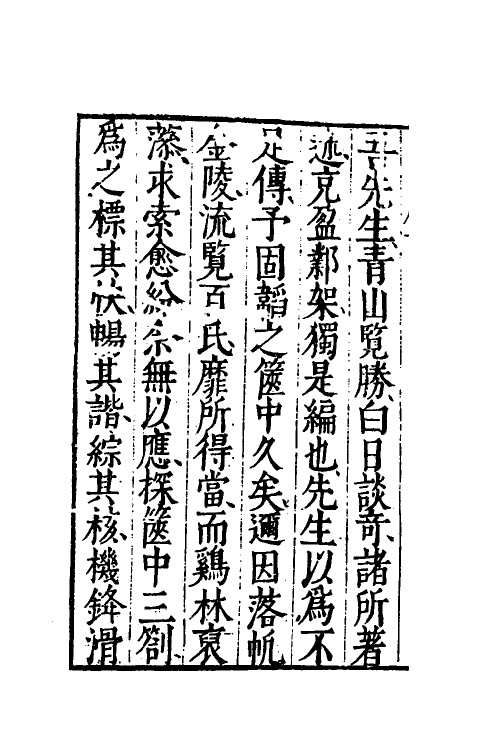 先生青山覽勝白日談奇諸所著
述充盈鄴架獨是編也先生以爲不
足傳予固韜之篋中久矣邇因落帆
金陵流覽百氏靡所得當而鷄林裒
求索愈紛無以應探篋中三劄
爲之標其暢其諧綜其核機鋒滑